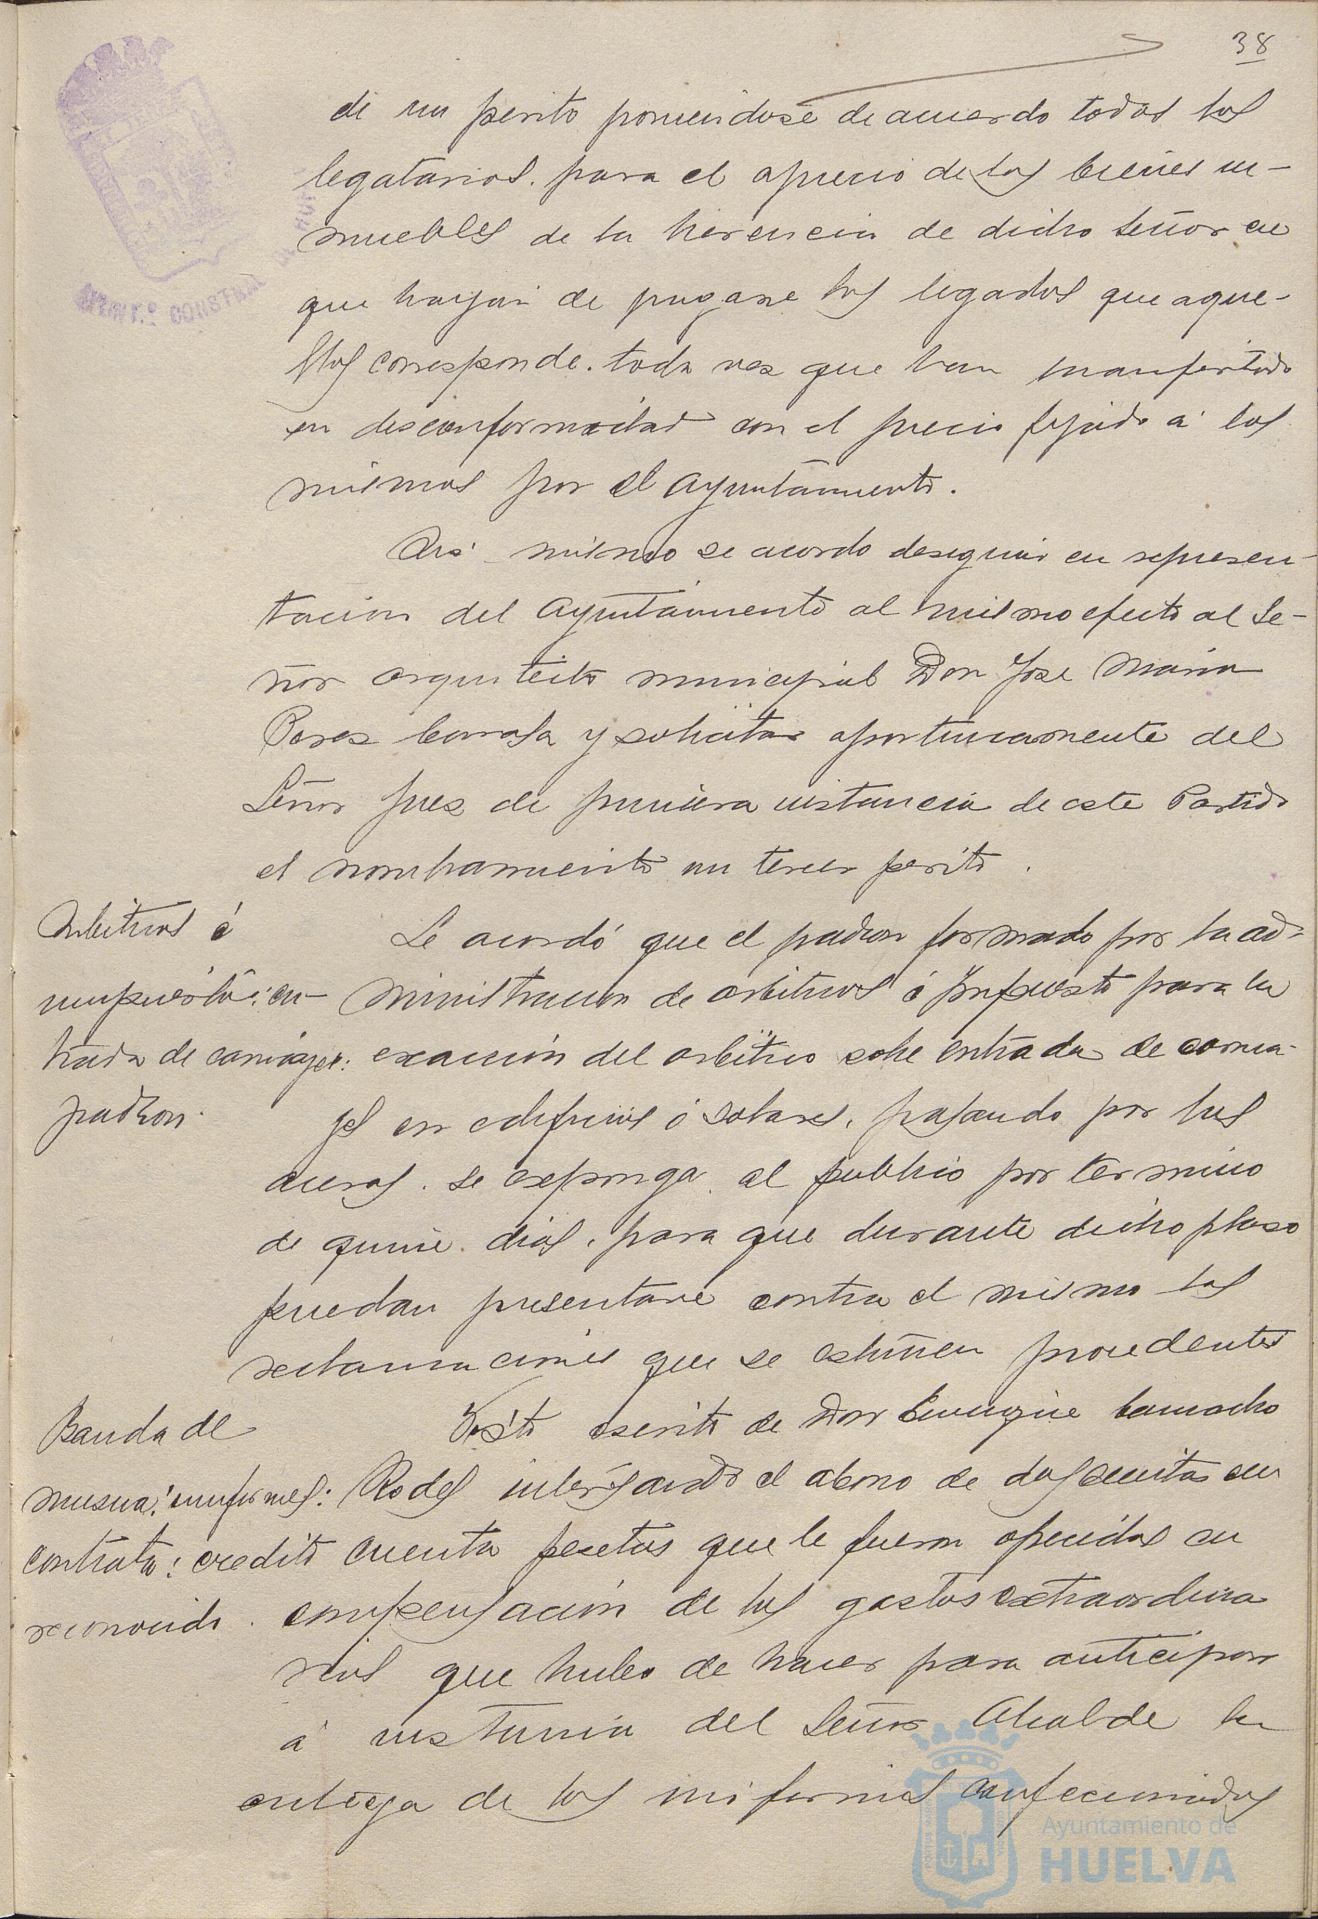 38
de un perito poniendose de acuerdo todos los
legatarios. para el aprecio de los bienes in-
muebles de la herencia de dicho Señor en
que hayan de pagarse los legados que aque-
llos corresponde. toda vez que han manifestado
su disconformidad con el precio fijado á los
mismos por el Ayuntamiento.
Asi mismo se acordo designar en represen-
tacion del Ayuntamiento al mismo efecto al Se-
ñor arquitecto municipal Don Jose Maria
Perez Carasa y solicitar oportunamente del
Señor Juez de primera instancia de este Partido
el nombramiento un tercer perito.
Arbitrios é
impuestos: en-
trada de carruajes:
padron.
Se acordó que el padron formado por la ad-
ministracion de arbitrios é Impuesto para la
exacción del arbitrio sobre entrada de carrua-
jes en edificios ó solares, pasando por las
aceras. se exponga al publico por termino
de quince dias, para que durante dicho plazo
puedan presentarse contra el mismo las
reclamaciones que se estimen procedentes
Banda de
musica: uniformes:
contrata: credito
reconocido.
Visto escrito de Don Enrique Camacho
Rodes interesando el abono de doscientas cin
cuenta pesetas que le fueron ofrecidas en
compensación de los gastos extraordina
rios que hubo de hacer para anticipar
á instancia del Señor Alcalde la
entrega de los uniformes confeccionados
Ayuntamiento de
HUELVA